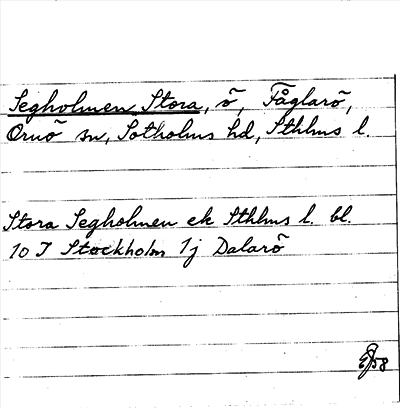 Segholmen Stora, ö, Fåglarö,
Ornö sn, Sotholms hd, Sthlms l.
Stora Segholmen ek Sthlms l. bl.
10 I Stockholm 1j Dalarö